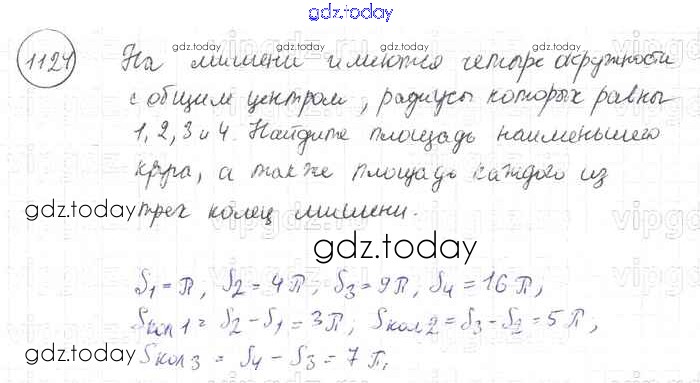 gdz.today
1124 На мишени имеются четыре окружности
с общим центром, радиусы которых равны
1, 2, 3 и 4. Найдите площадь наименьшего
круга, а также площадь каждого из
трех колец мишени.
gdz.today
S₁ = π, S₂ = 4π, S₃ = 9π, S₄ = 16π,
Sкол1 = S₂ - S₁ = 3π; Sкол2 = S₃ - S₂ = 5π;
Sкол3 = S₄ - S₃ = 7π,